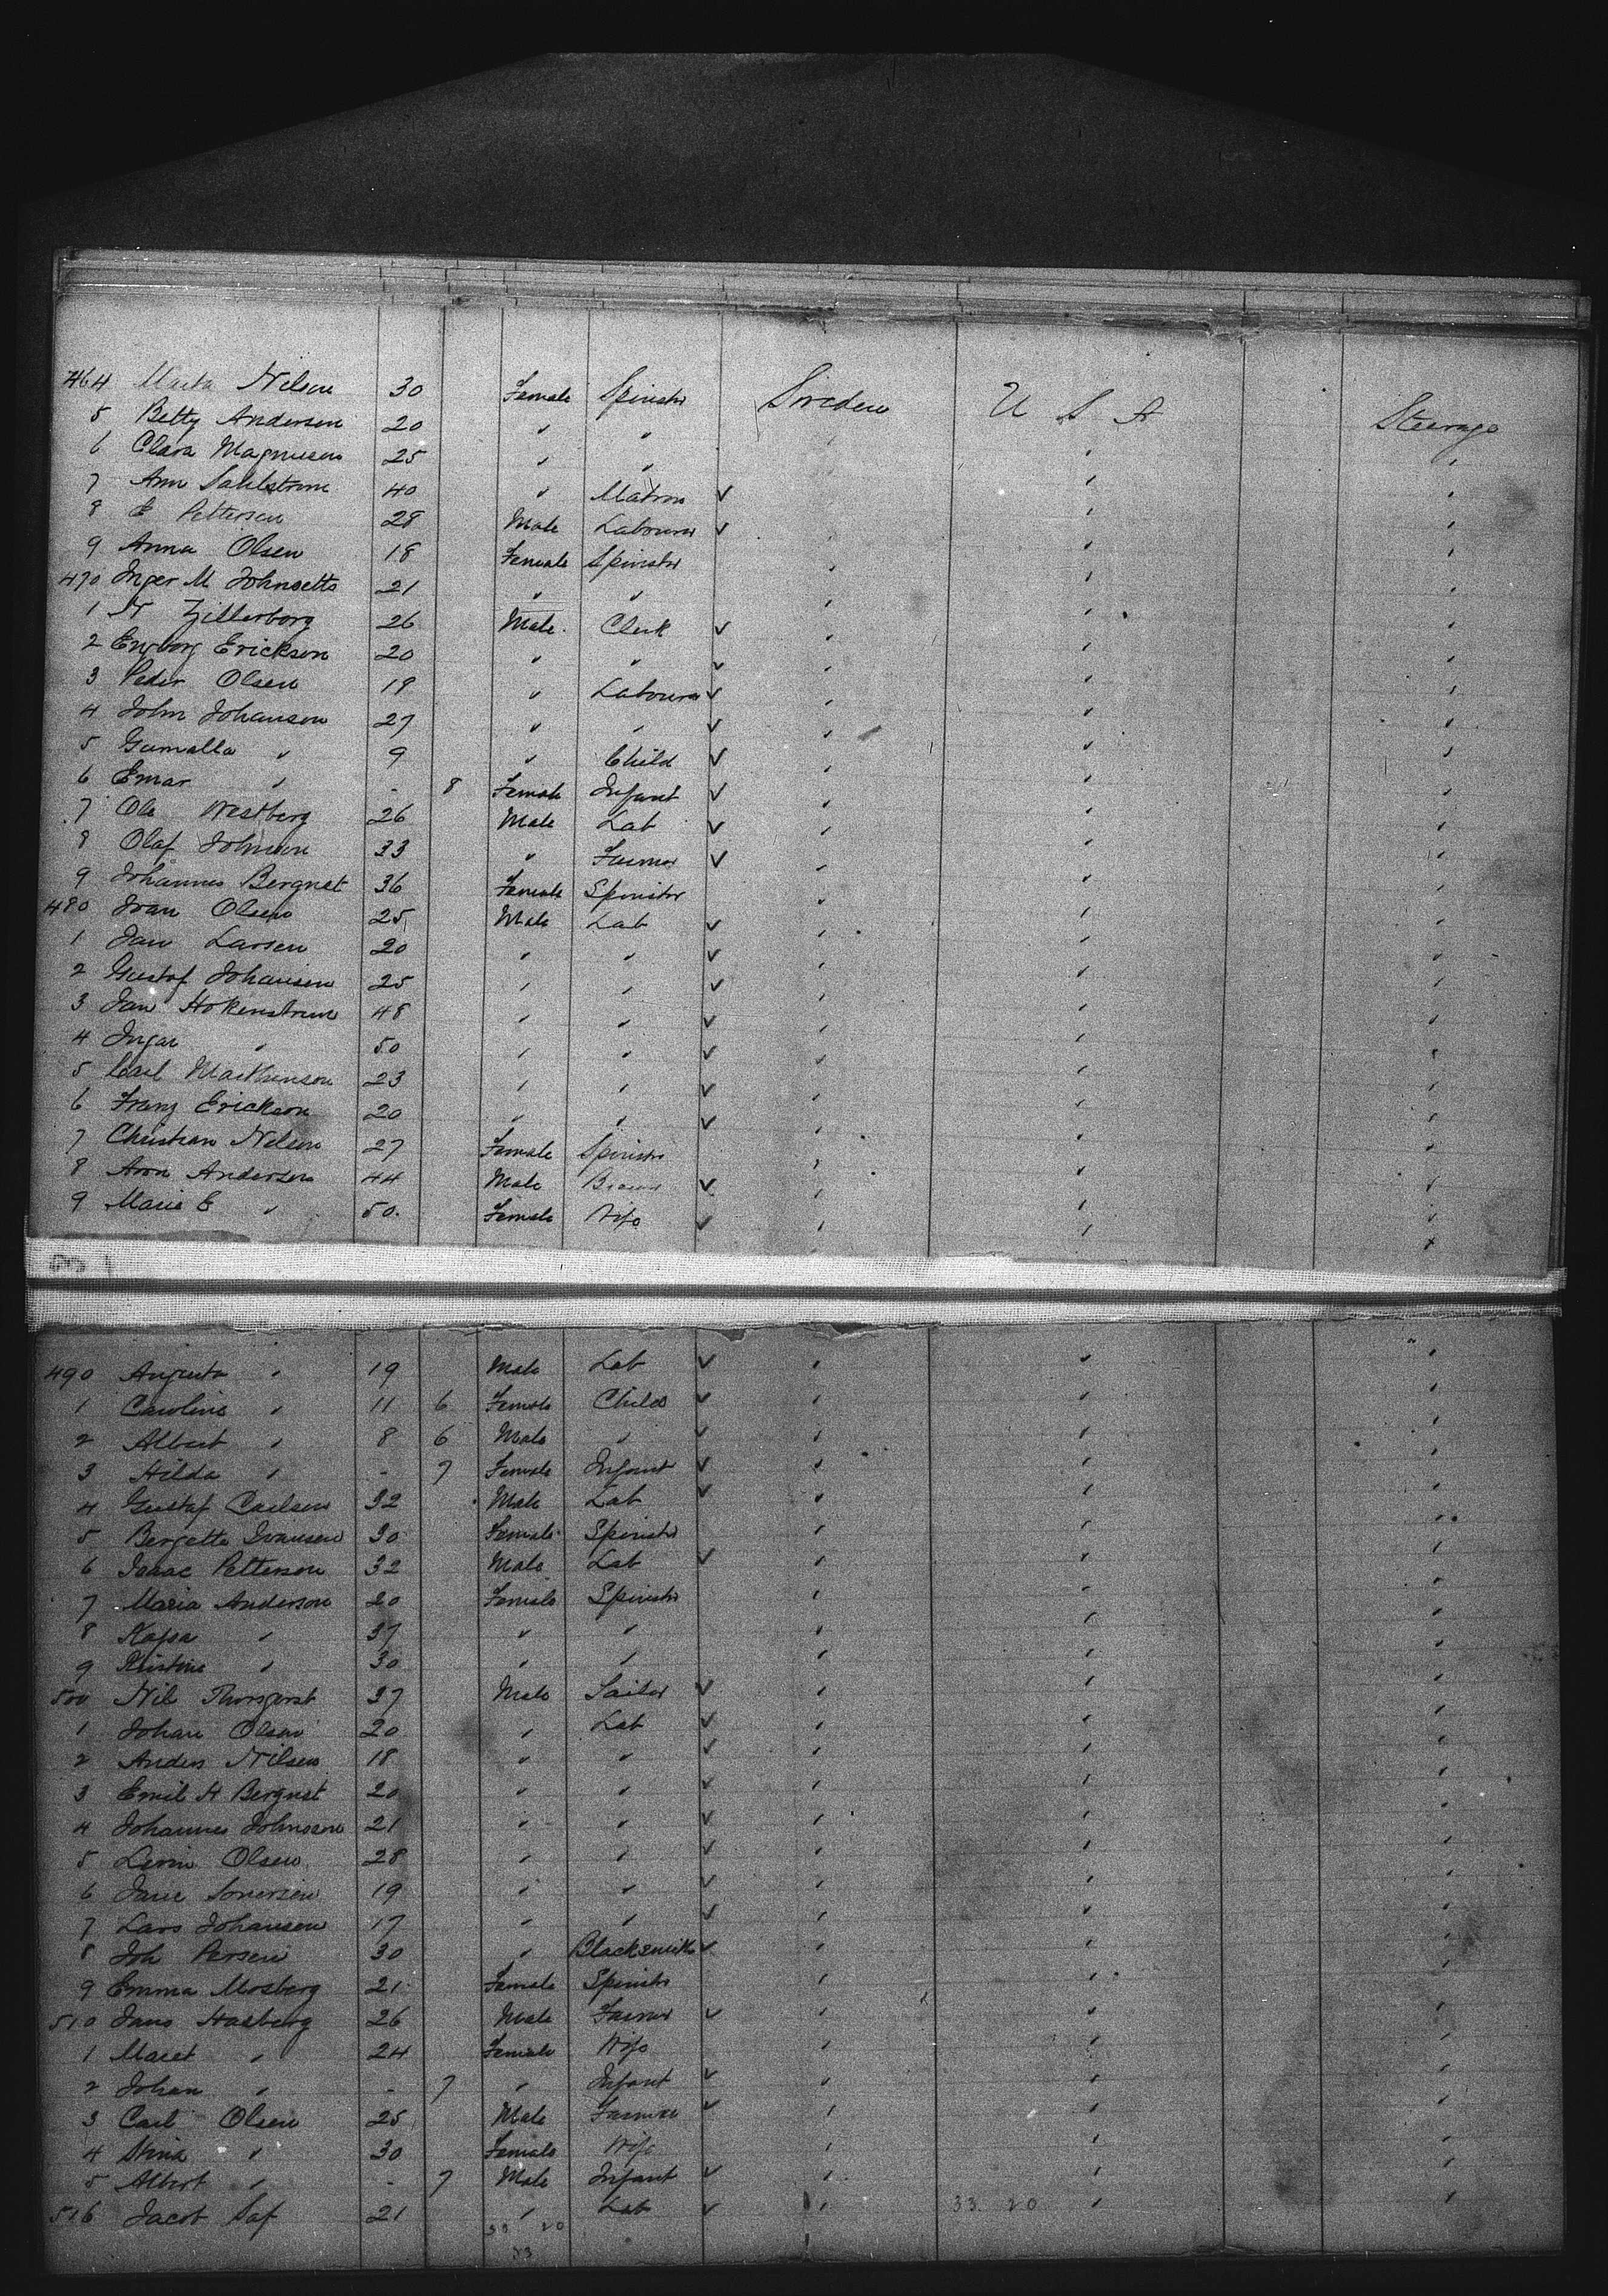 464 Maria Nelson 30 Female Spinstr Sweden U S A Steerage
5 Betty Andersen 20 " "
6 Clara Magnusen 25 " "
7 Ann Sahlstrom 40 " Matron ✓
8 E Pettersen 28 Male Labourer ✓
9 Anna Olsen 18 Female Spinstr
470 Inger M 21 " "
1 26 Male Clerk ✓
2 Engborg Erickson 20 " " ✓
3 Peder Olsen 19 " Labourer ✓
4 John Johanson 27 " " ✓
5 " 9 " Child ✓
6 Emar " - 8 Female Infant ✓
7 Ole Westberg 26 Male Lab ✓
8 Olaf Johnson 33 " Farmer ✓
9 Johannes Bergnst 36 Female Spinstr
480 Ivan Olsen 25 Male Lab ✓
1 Jan Larsen 20 " " ✓
2 Gustaf Johansen 25 " " ✓
3 Jan Hokenstrum 48 " " ✓
4 Ingar " 50 " " ✓
5 Carl 23 " " ✓
6 Franz Erickson 20 " " ✓
7 Christian Nelson 27 Female Spinstr
8 Andersen 44 Male ✓
9 Marie E " 50 Female Wife ✓
490 Augusta " 19 Male Lab ✓
1 Caroline " 11 6 Female Child ✓
2 Albert " 8 6 Male " ✓
3 Hilda " - 7 Female Infant ✓
4 Gustaf Carlsen 32 Male Lab ✓
5 Bergetta 30 Female Spinstr
6 Isaac Petterson 32 Male Lab ✓
7 Maria Anderson 20 Female Spinstr
8 Kajsa " 37 " "
9 Kristine " 30 " "
500 Nils 37 Male Sailor ✓
1 Johan Olsen 20 " Lab ✓
2 Anders Nilsen 18 " " ✓
3 Emil H Bergnst 20 " " ✓
4 Johannes Johnson 21 " " ✓
5 Olsen 28 " " ✓
6 19 " " ✓
7 Lars Johansen 17 " " ✓
8 Joh Persen 30 " Blacksmith ✓
9 Emma Mosberg 21 Female Spinstr
510 Jans Hasberg 26 Male Farmer ✓
1 Maret " 24 Female Wife
2 Johan " - 7 " Infant ✓
3 Carl Olsen 25 Male Farmer ✓
4 Stina " 30 Female Wife
5 Albert " - 7 Male Infant ✓
516 Jacob Saf 21 " Lab ✓
33 20